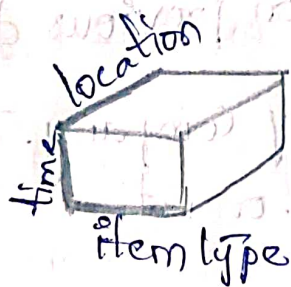 location
time
item type